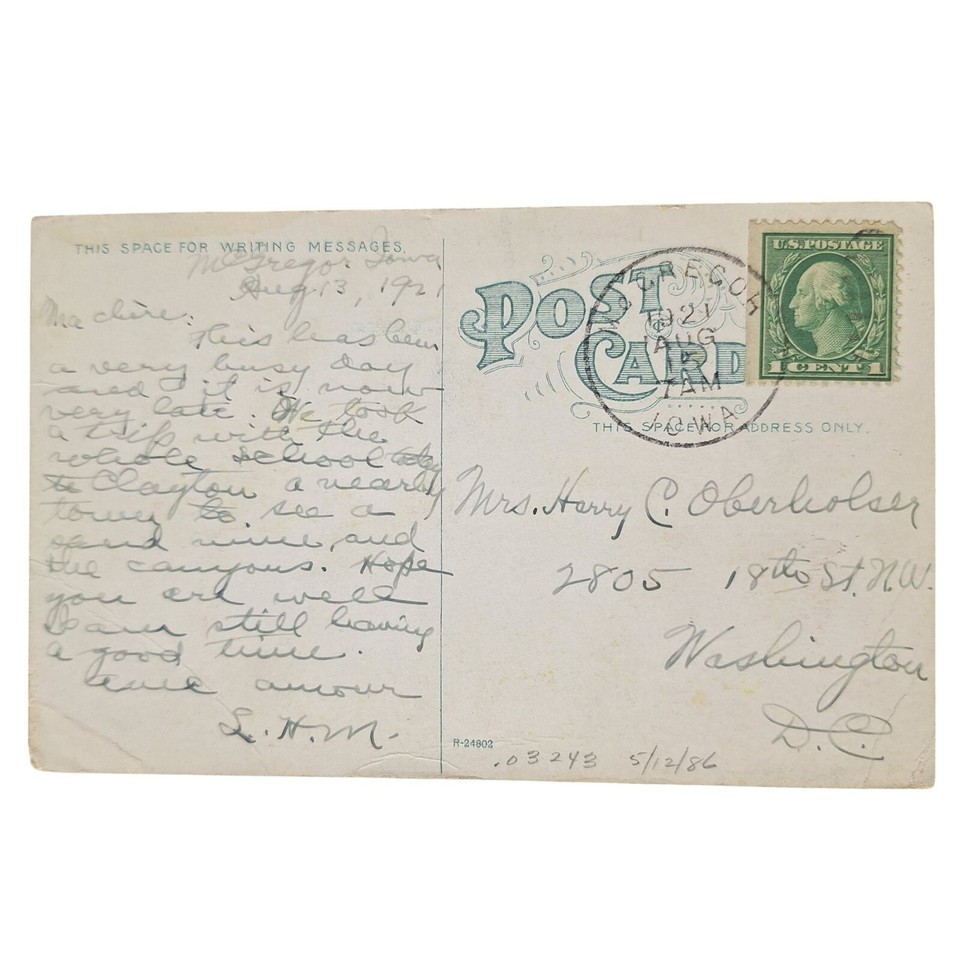 THIS SPACE FOR WRITING MESSAGES.
McGregor, Iowa
Aug 13, 1921
Ma chère:
This has been
a very busy day
and it is now
very late. We took
a trip with the
whole school today
to Clayton a nearby
town to see a
sand mine, and
the canyons. Hope
you are well
I am still having
a good time.
avec amour
L. H. M.
POST CARD
MCGREGOR
1921
AUG
15
7AM
IOWA
U.S. POSTAGE
1 CENT 1
THIS SPACE FOR ADDRESS ONLY.
Mrs. Harry C. Oberholser
2805 18th St. N.W.
Washington
D.C.
R-24802
.03243 5/12/86